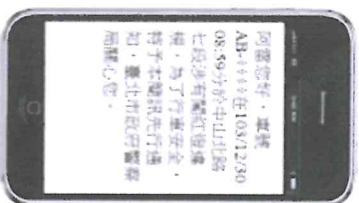 您好，車號
AB-****在103/12/30
08:59分於中山北路
七段涉有闖紅燈違
規，為了行車安全，
本簡訊先行通
知，臺北市政府警察
局關心您。